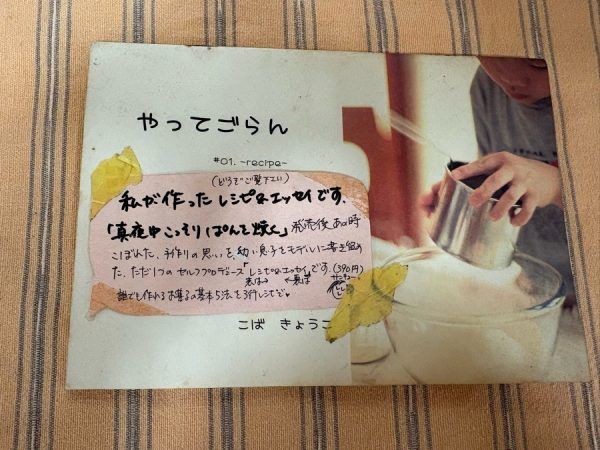 やってごらん
#01. -recipe-
(どうぞご覧下さい)
私が作ったレシピ&エッセイです。
「真夜中こっそりぱんを焼く」発売後、あの時
こぼれた、手作りの思いを幼い息子をモデルに書き留め
た、ただ1つのセルフプロデュースレシピ&エッセイです。(390円)
表は→ ←裏は サンキュー
誰でも作れるお菓子の基本5法を3行レシピで
こば きょうこ